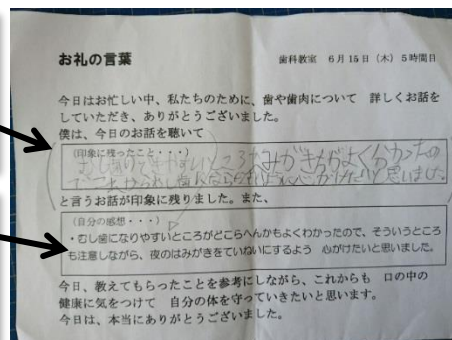 お礼の言葉
歯科教室 6月15日(木)5時間目
今日はお忙しい中、私たちのために、歯や歯肉について 詳しくお話を
していただき、ありがとうございました。
僕は、今日のお話を聴いて
(印象に残ったこと・・・)
むし歯のできやすいところ みがき方がよく分かったの
で、これから と思いました。
と言うお話が印象に残りました。また、
(自分の感想・・・)
・むし歯になりやすいところがどこらへんかもよくわかったので、そういうところ
も注意しながら、夜のはみがきをていねいにするよう 心がけたいと思いました。
今日、教えてもらったことを参考にしながら、これからも 口の中の
健康に気をつけて 自分の体を守っていきたいと思います。
今日は、本当にありがとうございました。